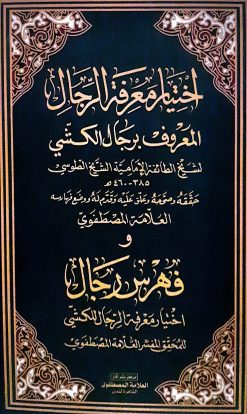 اختيار معرفة الرجال
المعروف برجال الكشي
لشيخ الطائفة الإمامية الشيخ الطوسي
٣٨٥-٤٦٠ هـ
حققه وصححه وعلق عليه وقدم له ووضع فهارسه
العلامة المصطفوي
و
فهرس رجال
اختيار معرفة الرجال للكشي
للمحقق المفسر العلامة المصطفوي
مركز نشر آثار
العلامة المصطفوي